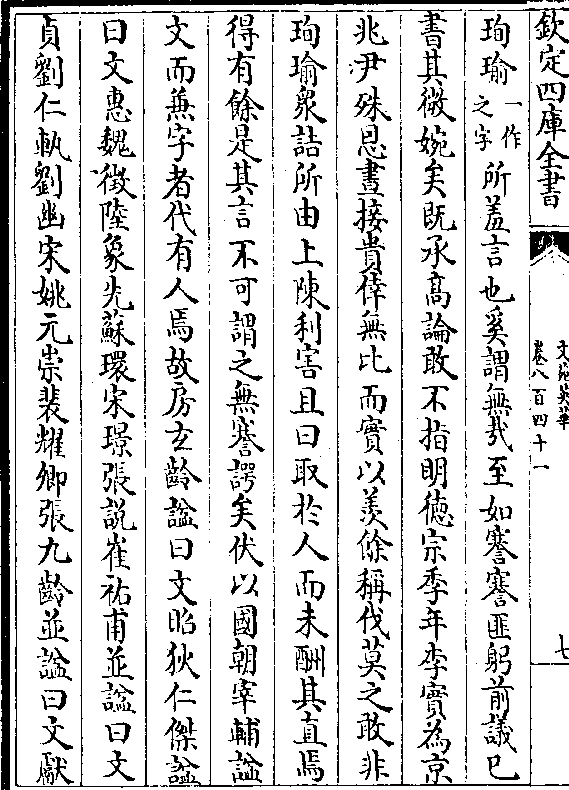 欽定四庫全書
文苑英華
卷八百四十一
七
珣瑜一作之字所羞言也奚謂無㢤至如謇謇匪躬前議已
書其微婉矣既承高論敢不指明徳宗季年李實為京
兆尹殊恩晝接貴倖無比而實以羨餘稱伐莫之敢非
珣瑜衆詰所由上陳利害且曰取於人而未酬其直焉
得有餘是其言不可謂之無謇諤矣伏以國朝宰輔諡
文而兼字者代有人焉故房玄齡諡曰文昭狄仁傑諡
曰文惠魏徴陸象先蘇環宋璟張説崔祐甫並諡曰文
貞劉仁軌劉幽宋姚元崇裴耀卿張九齡並諡曰文獻